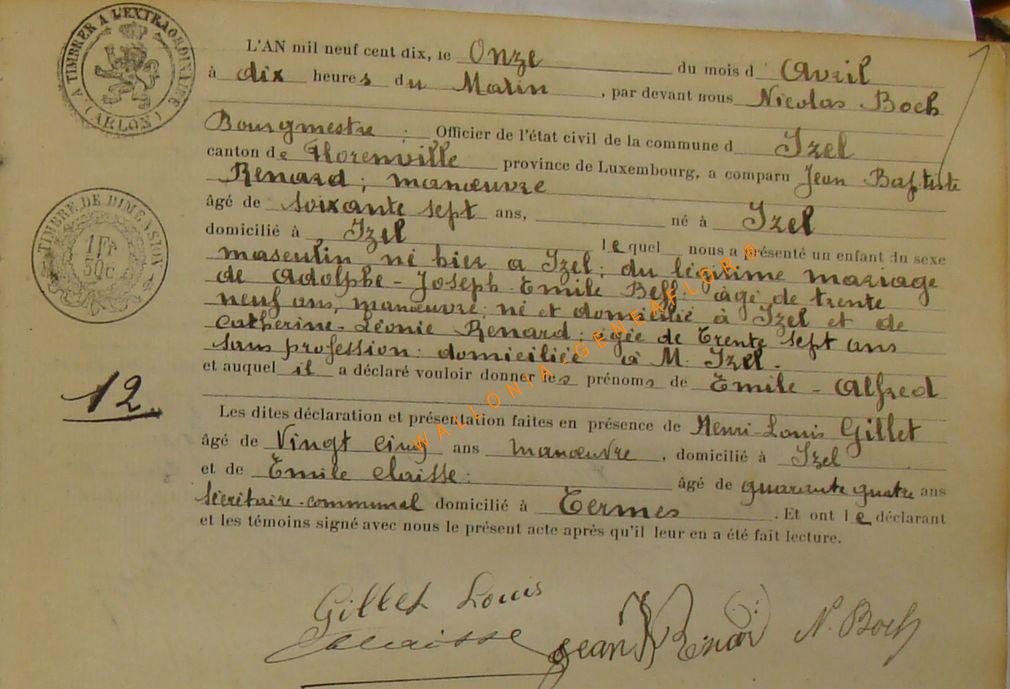 A TIMBRER A L'EXTRAORDINAIRE
(ARLON)
L'AN mil neuf cent dix, le Onze du mois d Avril
à dix heures du Matin, par devant nous Nicolas Boch
Bourgmestre ; Officier de l'état civil de la commune d Izel
canton de Florenville province de Luxembourg, a comparu Jean Baptiste
Renard ; manœuvre
âgé de soixante sept ans, né à Izel
domicilié à Izel lequel nous a présenté un enfant du sexe
masculin né hier a Izel ; du légitime mariage
de Adolphe - Joseph - Emile Bell âgé de trente
neuf ans, manœuvre ; né et domicilié à Izel et de
Catherine - Léonie Renard : agée de Trente sept ans
sans profession : domiciliée à M. Izel.
et auquel il a déclaré vouloir donner les prénoms de Emile - Alfred
TIMBRE DE DIMENSION
1 Fr
50c
12
Les dites déclaration et présentation faites en présence de Henri-Louis Gillet
âgé de Vingt cinq ans manœuvre, domicilié à Izel
et de Emile Claisse : âgé de quarante quatre ans
secrétaire-communal domicilié à Termes. Et ont le déclarant
et les témoins signé avec nous le présent acte après qu'il leur en a été fait lecture.
Gillet Louis
Claisse Jean B Renard N. Boch
WALLONIA.GENEAFLOR®